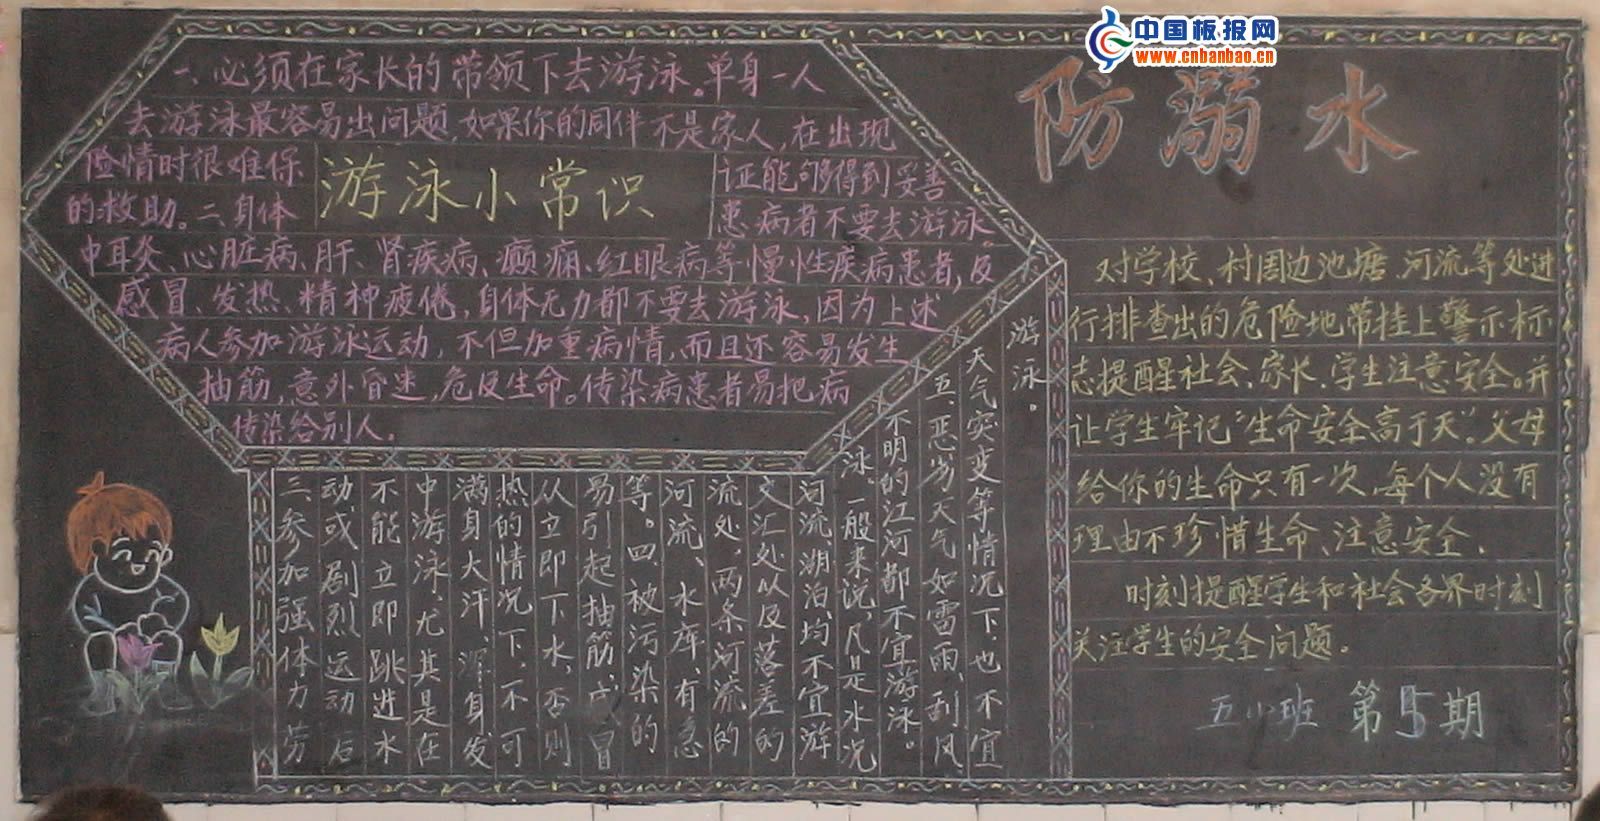 中国板报网
www.cnbanbao.cn
防溺水
游泳小常识
一、必须在家长的带领下去游泳。单身一人
去游泳最容易出问题,如果你的同伴不是家人,在出现
险情时很难保
证能够得到妥善
的救助。二、身体
患病者不要去游泳。
中耳炎、心脏病、肝、肾疾病、癫痫、红眼病等慢性疾病患者,及
感冒、发热、精神疲倦,身体无力都不要去游泳,因为上述
病人参加游泳运动,不但加重病情,而且还容易发生
抽筋,意外昏迷,危及生命。传染病患者易把病
传染给别人。
三、参加强体力劳
动或剧烈运动后
不能立即跳进水
中游泳,尤其是在
满身大汗,浑身发
热的情况下,不可
从立即下水,否则
易引起抽筋,感冒
等。四、被污染的
河流、水库,有急
流处,两条河流的
交汇处以及落差的
河流湖泊,均不宜游
泳。一般来说,凡是水况
不明的江河都不宜游泳。
五、恶劣天气如雷雨、刮风、
天气突变等情况下,也不宜
游泳。
对学校、村周边池塘、河流等处进
行排查出的危险地带挂上警示标
志提醒社会、家长、学生注意安全。并
让学生牢记“生命安全高于天”。父母
给你的生命只有一次,每个人没有
理由不珍惜生命、注意安全、
时刻提醒学生和社会各界时刻
关注学生的安全问题。
五小班 第5期